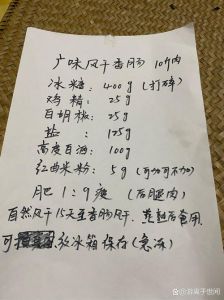 广味风干香肠 10斤肉
冰糖：400g (打碎)
鸡精：25g
白胡椒：25g
盐：125g
高度白酒：100g
红曲米粉：5g (可加可不加)
肥1：9瘦 (后腿肉)
自然风干15天至香肠风干．蒸熟后食用．
可放冰箱保存(急冻)
@游离于世间